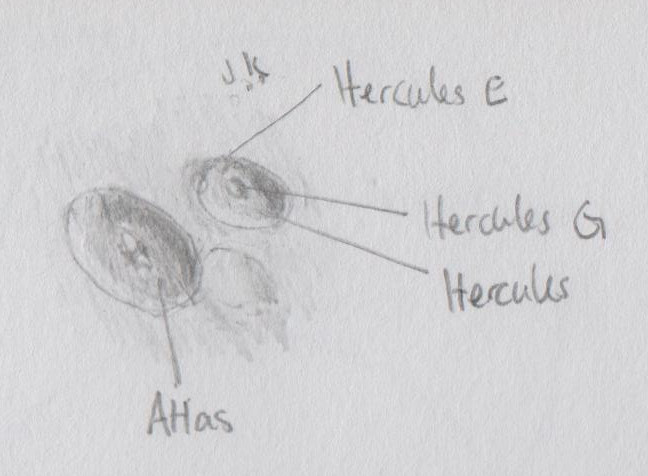 J K
Hercules E
Hercules G
Hercules
Atlas